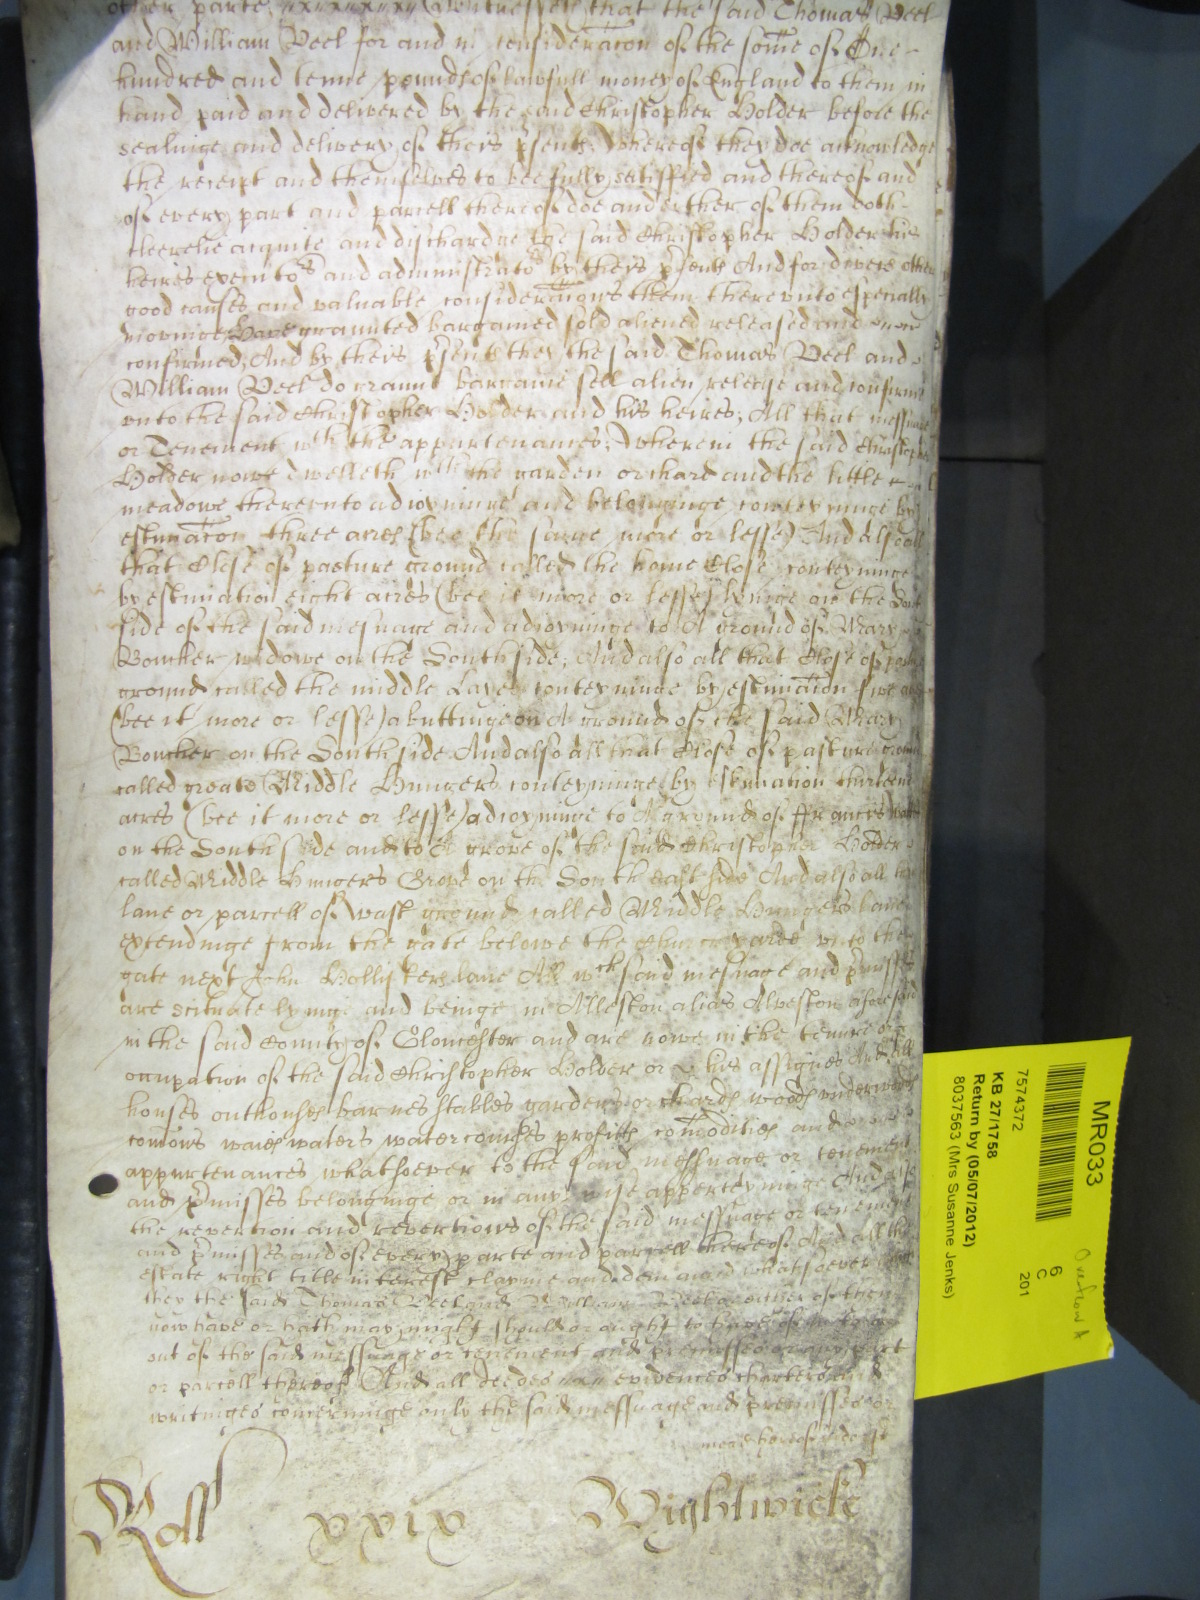 other parte, Witnesseth that the said Thomas Veel
and William Veel for and in consideracon of the some of One
hundred and tenne pounds of lawfull money of England to them in
hand paid and delivered by the said Christopher Holder before the
sealinge and delivery of theis psents, Whereof they doe acknowledge
the receipt and themselves to bee fully satisfied and thereof and
of every part and parcell thereof doe and either of them doth
cleerelie acquite and dischardge the said Christopher Holder his
heires executo^rs and administrato^rs by theis psents And for divers other
good causes and valuable consideracions them therevnto especially
movinge Have graunted bargained sold aliened released and
confirmed, And by theis psents they the said Thomas Veel and
William Veel do graunt bargaine sell alien release and confirme
vnto the said Christopher Holder and his heires, All that messuage
or Tenement w^th the appurtenances, Wherein the said Christopher
Holder nowe dwelleth w^th the garden orchard and the little
meadowe therevnto adioyninge and belonginge conteyninge by
estimacon three acres (bee the same more or lesse) And also all
that Close of pasture ground called the home Close conteyninge
by estimation eight acres (bee it more or lesse) lyinge on the South
side of the said mesuage and adioyninge to A ground of Mary
Bowcher widowe on the South side, And also all that Close of pasture
ground called the middle Layes conteyninge by estimation five acres
(bee it more or lesse) abuttinge on A ground of the said Mary
Bowcher on the South side And also all that Close of pasture ground
called greate Middle Hungers conteyninge by estimation thirteene
acres (bee it more or lesse) adioyninge to A ground of ffrancis
on the South side and to A grove of the said Christopher Holder
called Middle Hungers Grove on the South east side And also all that
lane or parcell of wast ground called Middle Hungers lane
extendinge from the gate belowe the Churchyarde vnto the
gate next John Hollisters lane All w^ch said mesuage and pmisses
are scituate lyinge and beinge in Alleston alias Alveston aforesaid
in the said County of Gloucester and are nowe in the tenure or
occupation of the said Christopher Holder or his assignes And all
houses outhouses barnes stables gardens orchards woods vnderwoods
comons waies waters watercourses profitts comodities and
appurtenances whatsoever to the said messuage or tenement
and pmisses belonginge or in any wise apperteyninge And also
the revertion and revertions of the said messuage or tenement
and pmisses and of every parte and parcell thereof And all the
estate right title interest clayme and demaund whatsoever
they the said Thomas Veel and William Veel or either of them
now have or hath may might should or ought to have of in to or
out of the said messuage or tenement and premisses or any part
or parcell thereof And all deedes evidences charters and
writinges concerninge only the said messuage and premisses or
Roll xxix Wightwicke
MR033
7574372
KB 27/1758
Return by (05/07/2012)
8037563 (Mrs Susanne Jenks)
6
C
201